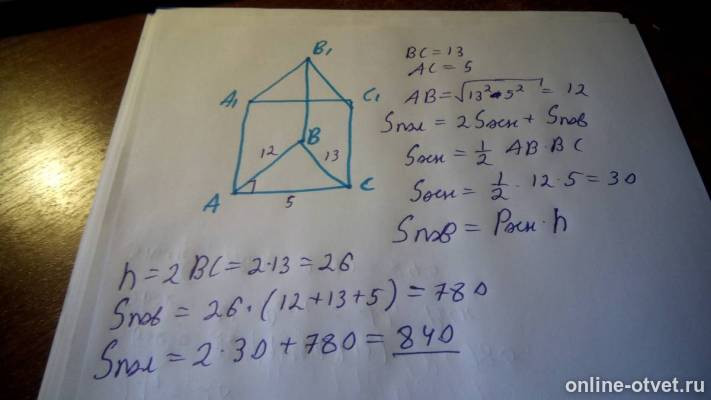 B₁
A₁
C₁
B
12
13
A
5
C
BC=13
AC=5
AB=√13²-5² = 12
Sпол = 2Sосн + Sпов
Sосн = 1/2 AB·BC
Sосн = 1/2 · 12·5=30
Sпов = Pосн·h
h=2BC=2·13=26
Sпов = 26·(12+13+5)=780
Sпол = 2·30+780=840
online-otvet.ru